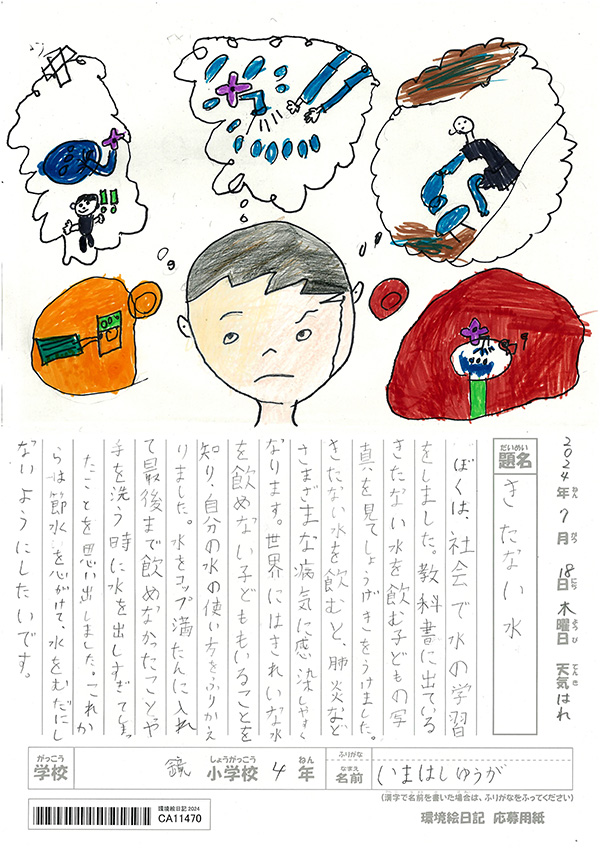 2024年7月18日 木曜日 天気はれ
ねん がつ にち ようび てんき
だいめい
題名
きたない水
ぼくは、社会で水の学習
をしました。教科書に出ている
きたない水を飲む子どもの写
真を見てしょうげきをうけました。
きたない水を飲むと、肺炎など
さまざまな病気に感染しやすく
なります。世界にはきれいな水
を飲めない子どももいることを
知り、自分の水の使い方をふりかえ
りました。水をコップ満たんに入れ
て最後まで飲めなかったことや
手を洗う時に水を出しすぎてしまっ
たことを思い出しました。これか
らは節水を心がけて、水をむだにし
ないようにしたいです。
がっこう しょうがっこう ねん ふりがな
学校 鏡 小学校 4年
なまえ
名前 いまはしゆうが
(漢字で名前を書いた場合は、ふりがなをふってください)
環境絵日記 応募用紙
環境絵日記 2024
CA11470